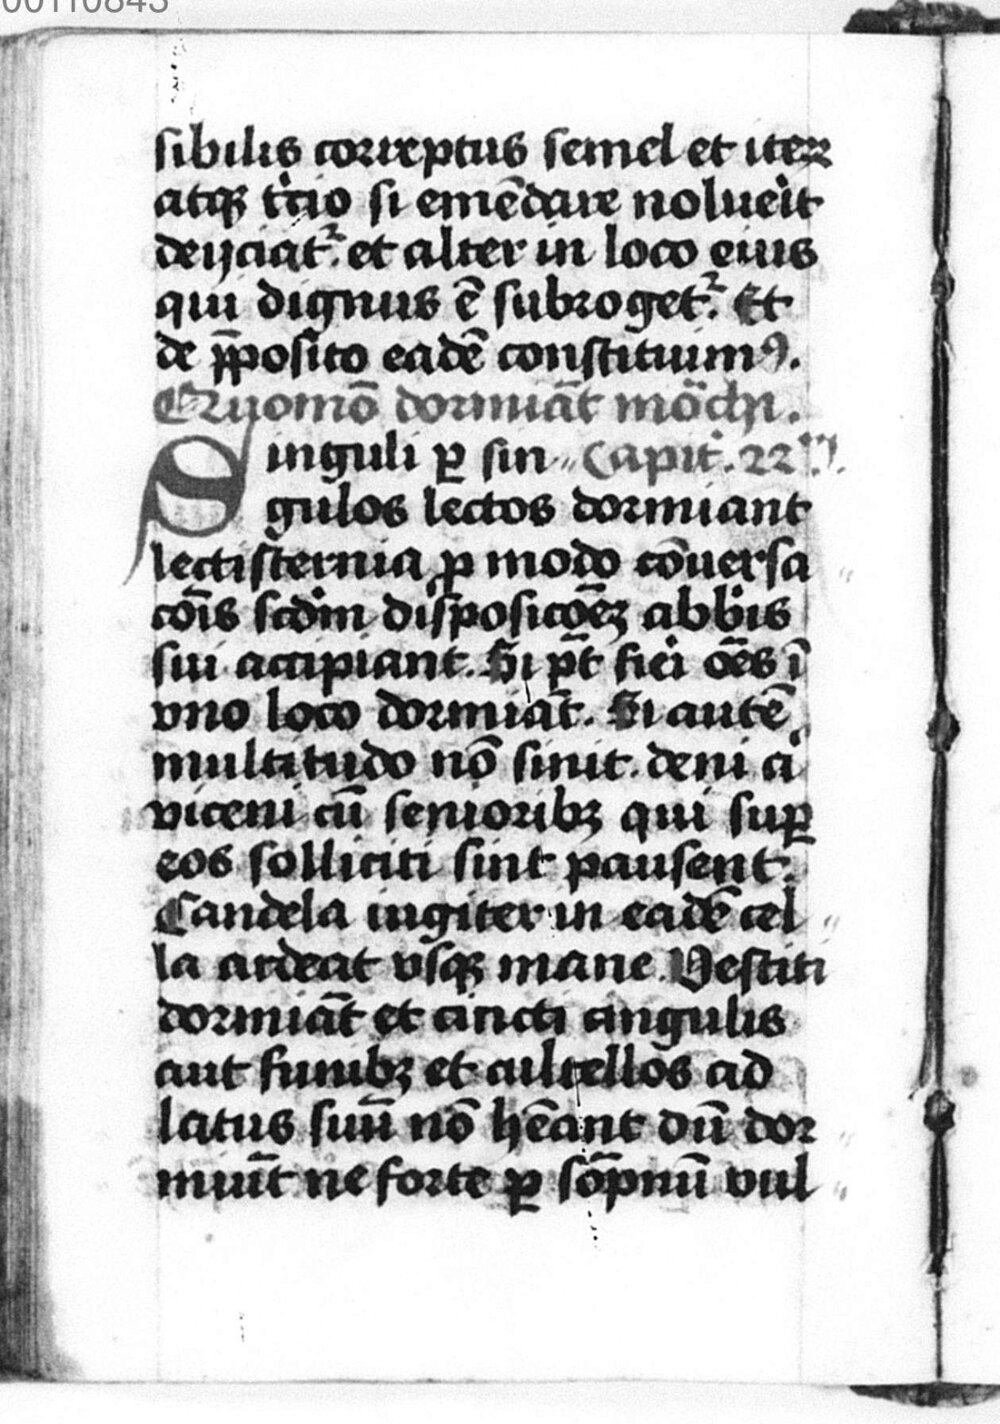 00110843
sibilis correptus semel et iterꝝ
atqꝫ t̾cio si emēdare noluerit
deijciat᷑. et alter in loco eius
qui dignus ē subroget᷑. Et
de p̄posito eadē constituimꝰ.
Quomō dormiāt mōchi.
Singuli ꝑ sin〃 Capit. 22m.
gulos lectos dormiant
lectisternia ꝓ modo cōuersa〃
cōis scdm disposicōeꝫ abbis
sui accipiant. Si pt̄ fieri oēs ī
vno loco dormiāt. Si autē
multitudo nō sinit. deni aͥ
viceni cū senioribꝫ qui suꝑ
eos solliciti sint pausent.
Candela iugiter in eadē cel〃
la ardeat vsqꝫ mane. Vestiti
dormiāt et cincti cingulis
aut funibꝫ et cultellos ad
latus suū nō hēant dū dor〃
miūt ne forte ꝑ sōpnū vul〃